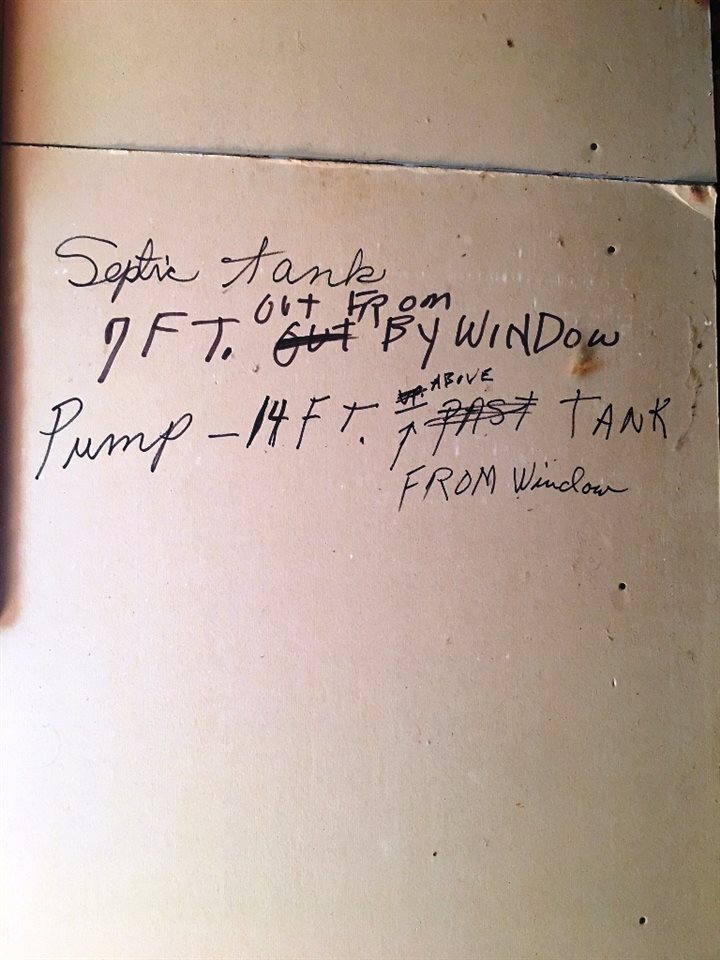 Septic tank
OUT FROM
7 FT. OUT BY WINDOW
UP ABOVE
Pump - 14 FT. ↑ PAST TANK
FROM Window